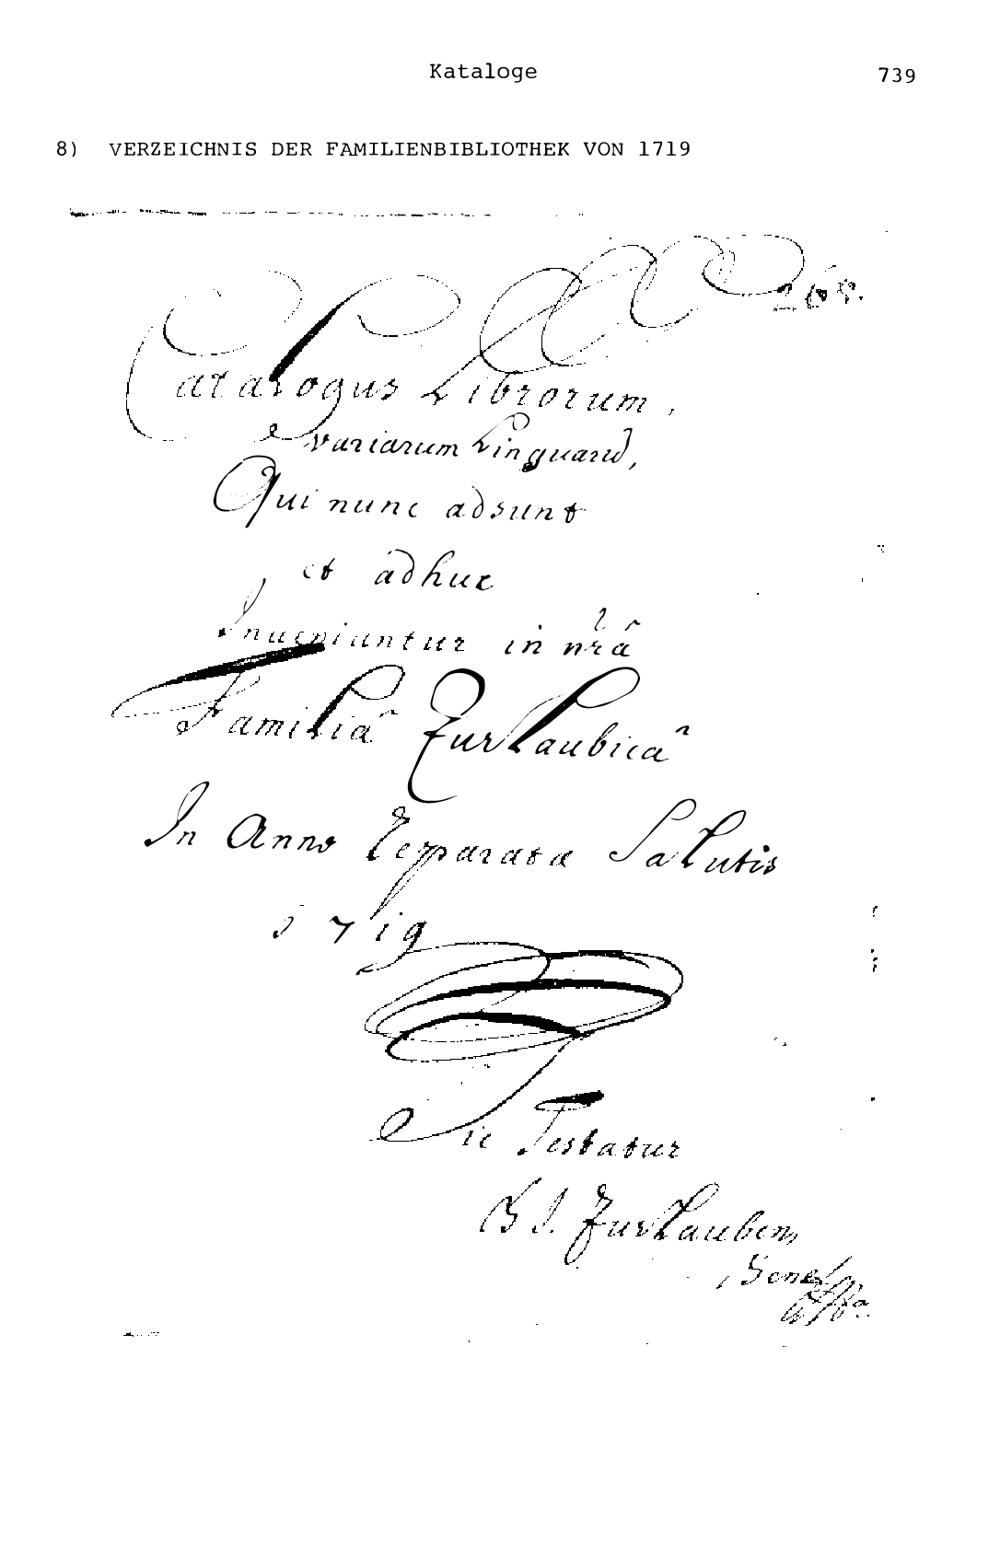 Kataloge 739
8) VERZEICHNIS DER FAMILIENBIBLIOTHEK VON 1719
265.
Catalogus Librorum,
variarum Linguarũ,
Qui nunc adsunt
et adhuc
Inueniuntur in nr̃â
Familiâ Zurlaubicâ
In Anno Reparata Salutis
1719
Sic Testatur
B J. Zurlauben,